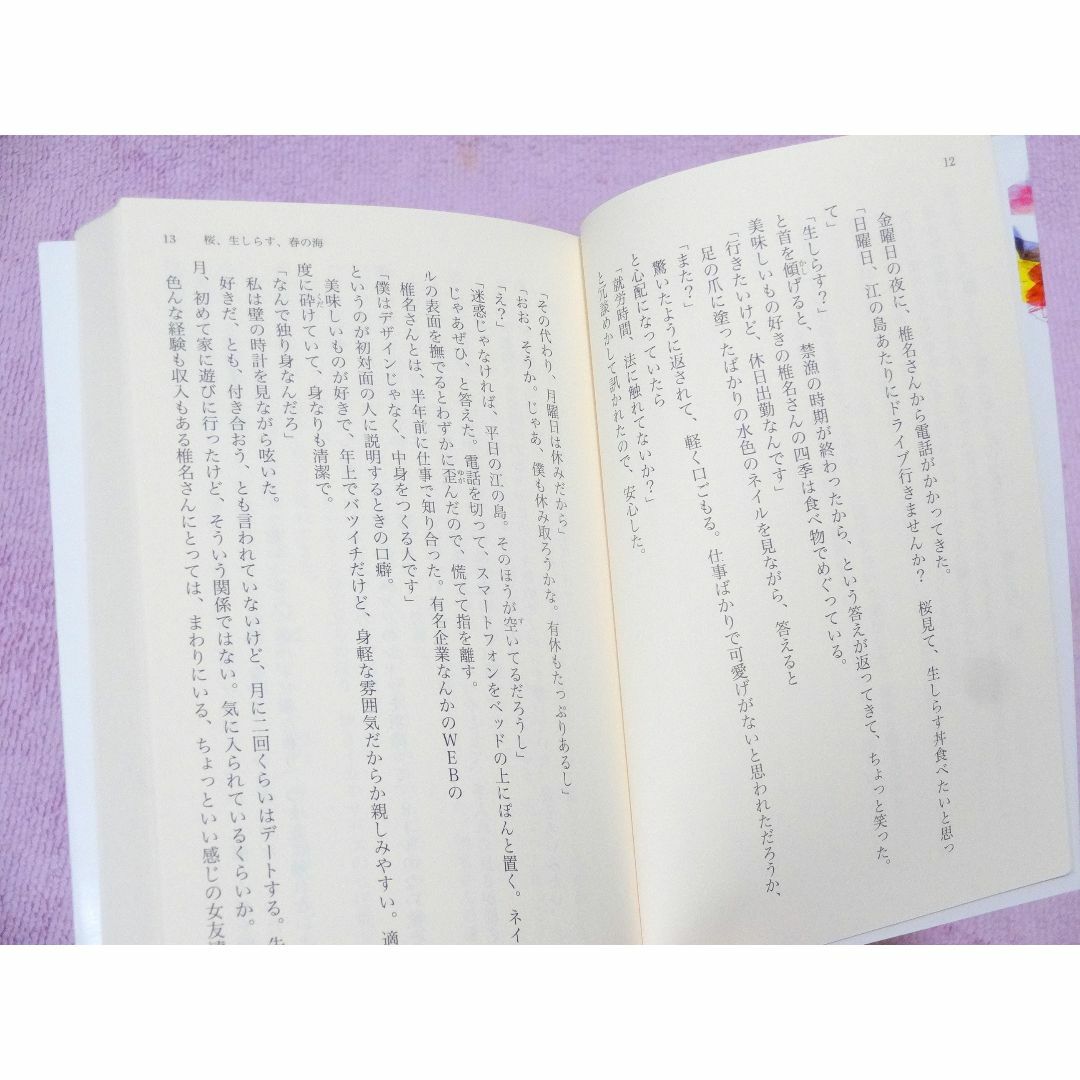 12
金曜日の夜に、椎名さんから電話がかかってきた。
「日曜日、江の島あたりにドライブ行きませんか？　桜見て、生しらす丼食べたいと思っ
て」
「生しらす？」
と首を傾げると、禁漁の時期が終わったから、という答えが返ってきて、ちょっと笑った。
美味しいもの好きの椎名さんの四季は食べ物でめぐっている。
「行きたいけど、休日出勤なんです」
足の爪に塗ったばかりの水色のネイルを見ながら、答えると
「また？」
驚いたように返されて、軽く口ごもる。仕事ばかりで可愛げがないと思われただろうか、
と心配になっていたら
「就労時間、法に触れてないか？」
と冗談めかして訊かれたので、安心した。
13　桜、生しらす、春の海
「その代わり、月曜日は休みだから」
「おお、そうか。じゃあ、僕も休み取ろうかな。有休もたっぷりあるし」
「え？」
「迷惑じゃなければ、平日の江の島。そのほうが空いてるだろうし」
じゃあぜひ、と答えた。電話を切って、スマートフォンをベッドの上にぽんと置く。ネイ
ルの表面を撫でるとわずかに歪んだので、慌てて指を離す。
椎名さんとは、半年前に仕事で知り合った。有名企業なんかのWEBの
「僕はデザインじゃなく、中身をつくる人です」
というのが初対面の人に説明するときの口癖。
美味しいものが好きで、年上でバツイチだけど、身軽な雰囲気だからか親しみやすい。適
度に砕けていて、身なりも清潔で。
「なんで独り身なんだろ」
私は壁の時計を見ながら呟いた。
好きだ、とも、付き合おう、とも言われていないけど、月に二回くらいはデートする。先
月、初めて家に遊びに行ったけど、そういう関係ではない。気に入られているくらいか。
色んな経験も収入もある椎名さんにとっては、まわりにいる、ちょっといい感じの女友達